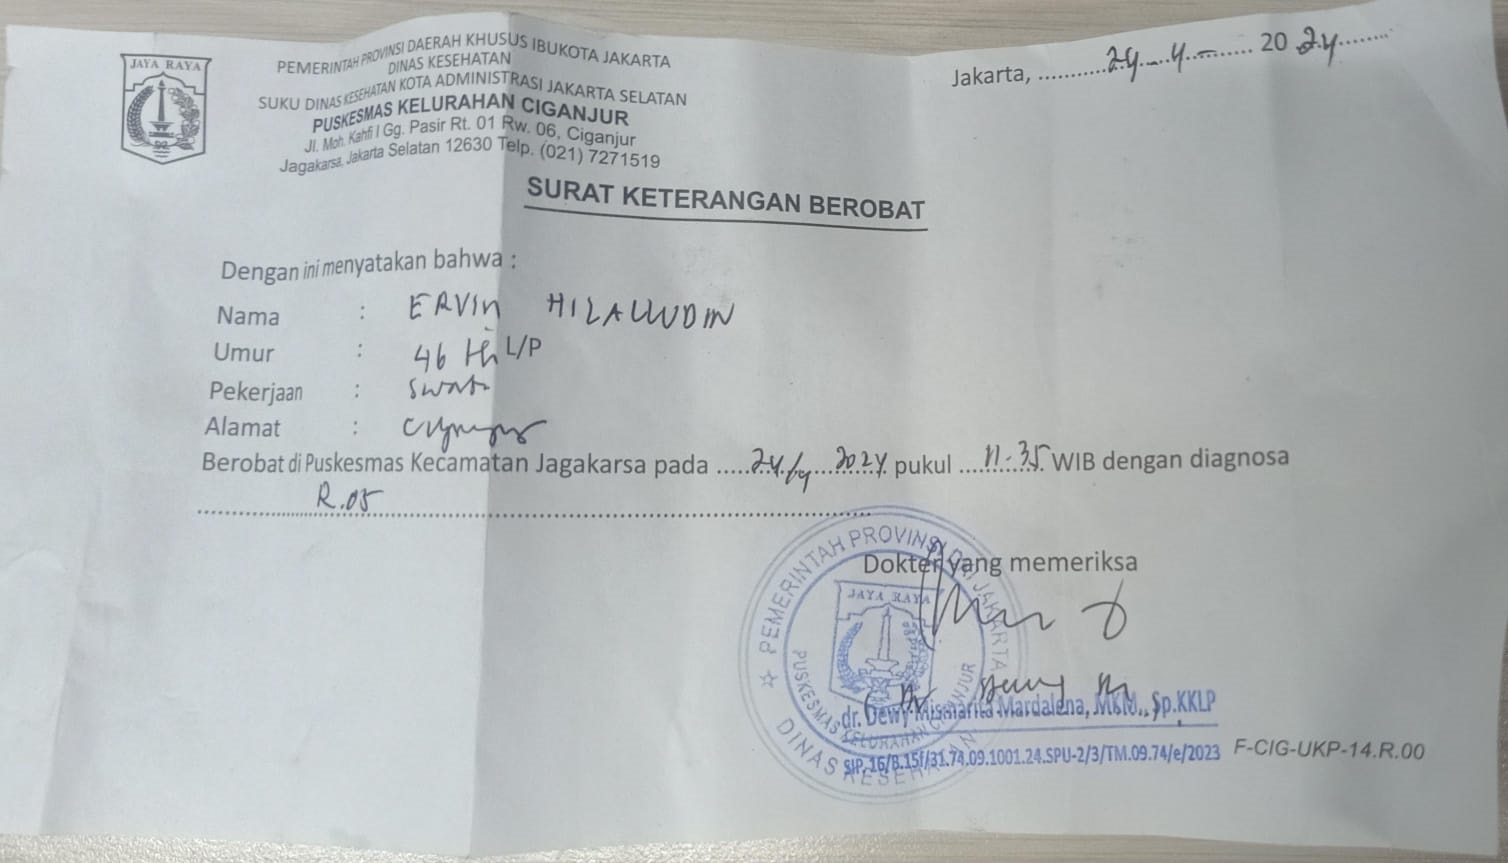 JAYA RAYA
PEMERINTAH PROVINSI DAERAH KHUSUS IBUKOTA JAKARTA
DINAS KESEHATAN
SUKU DINAS KESEHATAN KOTA ADMINISTRASI JAKARTA SELATAN
PUSKESMAS KELURAHAN CIGANJUR
Jl. Moh. Kahfi I Gg. Pasir Rt. 01 Rw. 06, Ciganjur
Jagakarsa, Jakarta Selatan 12630 Telp. (021) 7271519
Jakarta, ...........24...4........ 20 24........
SURAT KETERANGAN BEROBAT
Dengan ini menyatakan bahwa :
Nama : ERVIN HILALUDIN
Umur : 46 th L/P
Pekerjaan :
Alamat :
Berobat di Puskesmas Kecamatan Jagakarsa pada .....24/4....2024 pukul ....11.35 WIB dengan diagnosa
R.05
Dokter yang memeriksa
PEMERINTAH PROVINSI DKI JAKARTA
JAYA RAYA
PUSKESMAS KELURAHAN CIGANJUR
DINAS KESEHATAN
dr. Dewy Mismarita Mardalena, MKM., Sp.KKLP
SIP.16/B.15f/31.74.09.1001.24.SPU-2/3/TM.09.74/e/2023
F-CIG-UKP-14.R.00